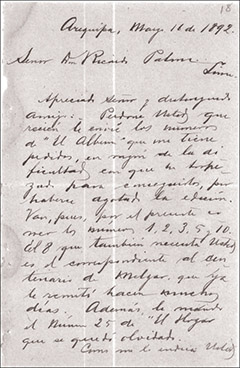 18
Arequipa, Mayo 11 de 1892.
Señor Dn Ricardo Palma
Lima.
Apreciado Señor y distinguido
amigo. Perdone Usted que
recien le envíe los números
de "El Album" que me tiene
pedidos, en razon de la di
ficultad con que he trope
zado para conseguirlos, por
haberse agotado la edicion.
Van, pues, por el presente co
rreo los números 1, 2, 3, 5 y 10.
El 8 que tambien necesita Usted
es el correspondiente al cen
tenario de Melgar, que ya
le remití hacen muchos
dias. Además, le mando
el Núm 25 de "El Hogar
que se quedó olvidado.
Como me le Usted